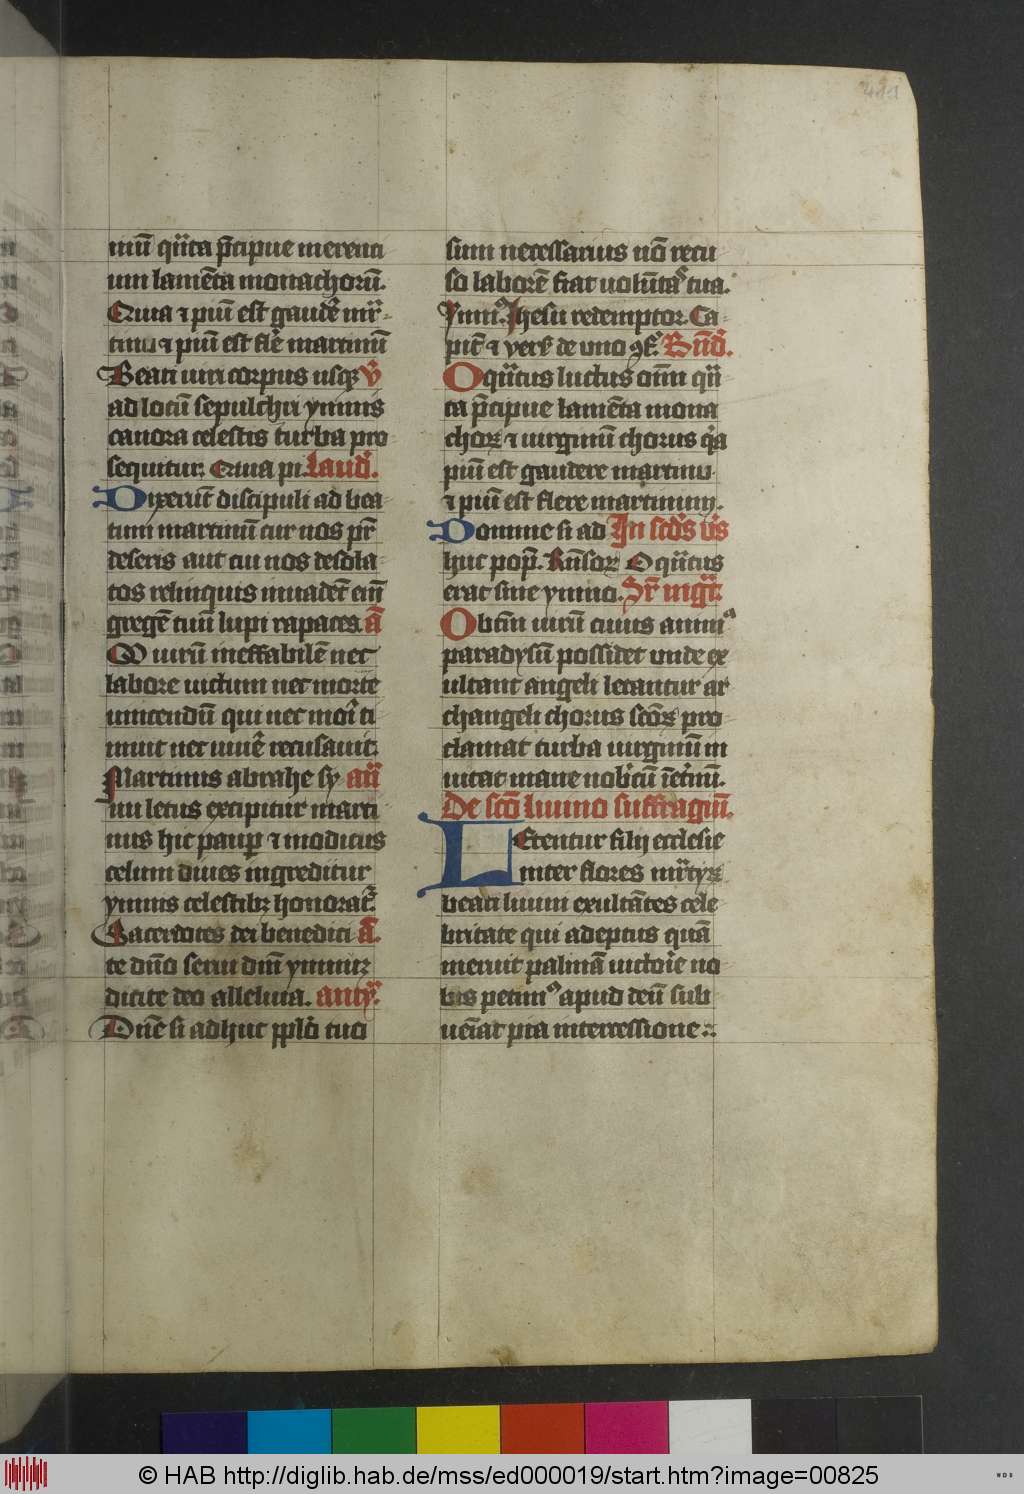 411
mū qūta p̄cipue mereuci
um lamēta monachorū.
Quia ⁊ piū est gaudē mr̄
tino ⁊ piū est flē martinū
Beati uiri corpus usqꝫ v̄
ad locū sepulchri ymnis
canora celestis turba pro
sequitur. Quia pi. laud̄.
Dixerūt discipuli ad bea
tum martinū cur nos pr̄
deseris aut cui nos desola
tos relinquis inuadēt em̄
gregē tuū lupi rapaces. a͞
O uirū ineffabilē nec
labore uictum nec morte
uincendū qui nec mori ti
muit nec uiuē recusauit.
Martinus abrahe sy an̄
nu letus excipitur marti
nus hic paup̄ ⁊ modicus
celum diues ingreditur
ymnis celestibꝫ honorat᷑.
Sacerdotes dei benedici a͞.
te dn̄o serui dn̄i ymnū
dicite deo alleluia. anty.
Dn̄e si adhuc pplō tuo
sum necessarius nō recu
so laborē fiat uolūtas tua.
Ymnꝰ Ihesu redemptor. Ca
pit̄ ⁊ vers̄ de uno ꝯf̄. Bn̄d̄.
O qūtus luctus om̄i qū
ta p̄cipue lamēta mona
choꝝ ⁊ uirginū chorus qa
piū est gaudere martino
⁊ piū est flere martinum.
Domine si ad In scd̄s v̄s
huc pop̄. Rn̄soꝝ O qūtus
erat sine ymno. Sr̄ mgt̄.
O btm̄ uirū cuius anima
paradysū possidet unde ex
ultant angeli letantur ar
changeli chorus scōꝝ pro
clamat turba uirginū in
uitat mane nob̄cū īet̄nū.
De scō liuino suffragiū.
Letentur filij ecclesie
inter flores mr̄tyꝝ
beati liuini exultātes cele
britate qui adeptus quā
meruit palmā uictorie no
bis petimꝰ apud deū sub
ueniat pia intercessione
© HAB http://diglib.hab.de/mss/ed000019/start.htm?image=00825